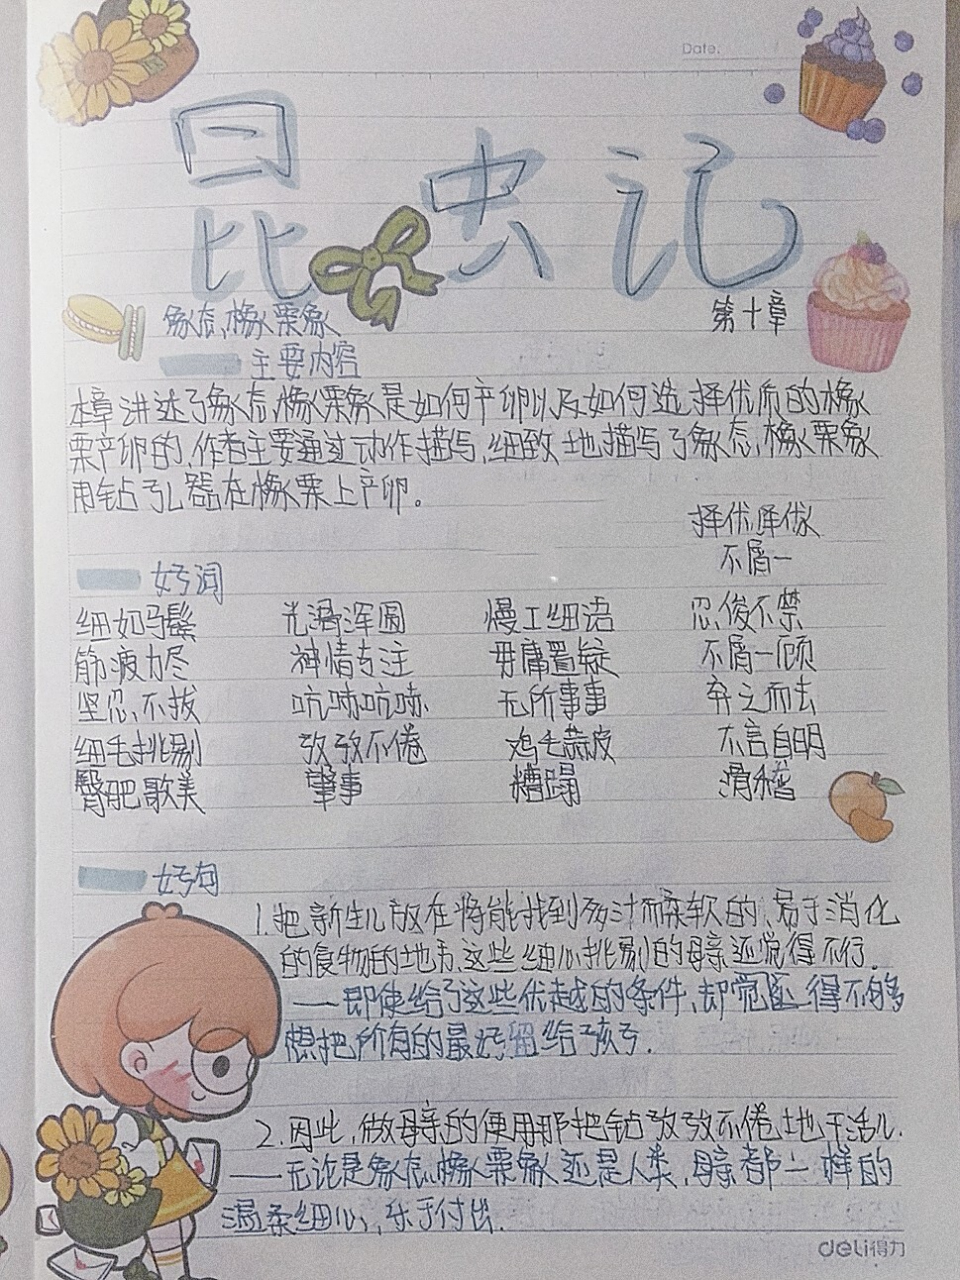 Date:
昆虫记
象态橡栗象
第十章
主要内容
本章讲述了象态橡栗象是如何产卵以及如何选择优质的橡
栗产卵的,作者主要通过动作描写,细致地描写了象态橡栗象
用钻孔器在橡栗上产卵。
择优
不屑一
好词
细如马鬃 光滑浑圆 慢工细活 忍俊不禁
筋疲力尽 神情专注 毋庸置疑 不屑一顾
坚忍不拔 吭哧吭哧 无所事事 弃之而去
细毛挑剔 孜孜不倦 鸡毛蒜皮 不言自明
臀肥 美 肇事 糟蹋 滑稽
好句
1.把新生儿放在将能找到多汁而柔软的、易于消化
的食物的地方,这些细心挑剔的母亲还觉得不行.
——即使给了这些优越的条件,却觉 得不够
想把所有的最好留给孩子.
2.因此,做母亲的便用那把钻孜孜不倦地干活儿.
——无论是象态橡栗象还是人类,母亲都一样的
温柔细心,乐于付出.
deli得力